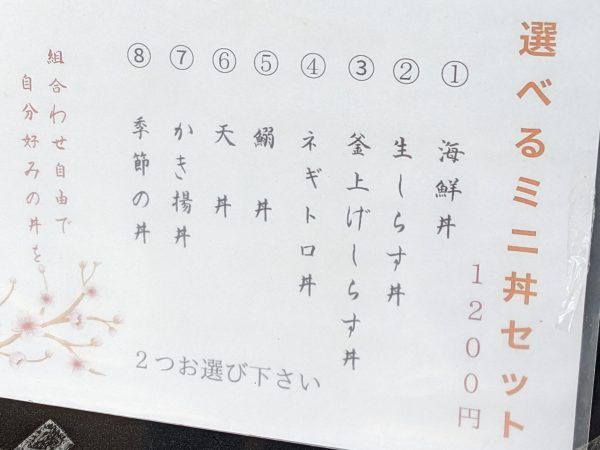 選べるミニ丼セット
1200円
① 海鮮丼
② 生しらす丼
③ 釜上げしらす丼
④ ネギトロ丼
⑤ 鰯丼
⑥ 天丼
⑦ かき揚丼
⑧ 季節の丼
2つお選び下さい
組合わせ自由で
自分好みの丼を